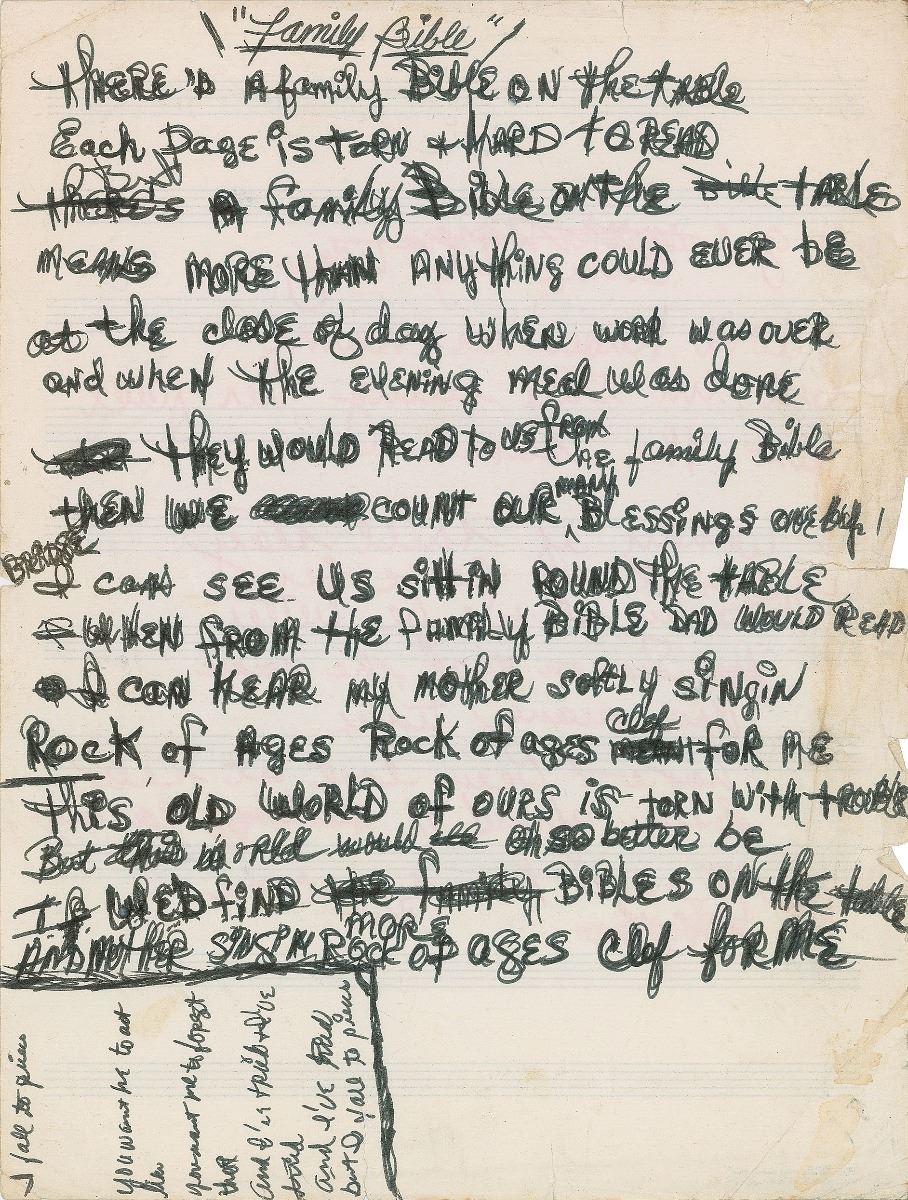 "Family Bible"
THERE'S A family BiblE ON the tABlE
Each Page is tORN & HARD tO READ
thERE'S A family BiblE ON the Bible TABLE
MEANS MORE THAN ANYthiNG COULD EVER bE
at the close of day when work was over
and when the EVENING meal was done
they WOULD READ to US from the family Bible
then WE COUNT OUR many Blessings one by 1
BRidge
I can SEE US sittin ROUND the tABLE
WHEN FROM the family BIBLE DAD WOULD READ
I CAN HEAR my mother softly singin
ROCK of AGES Rock of ages clef for ME
This OLD WORLD of OURS is torn with troubles
But this world would oh so better be
If WE'D fiND the family more BIBLES ON the table
AND MOTHER SINGIN Rock of ages clef for ME
I fall to pieces
you want me to act
like
you want me to forget
that
And I've tried & I've
tried
and I've tried
but I fall to pieces